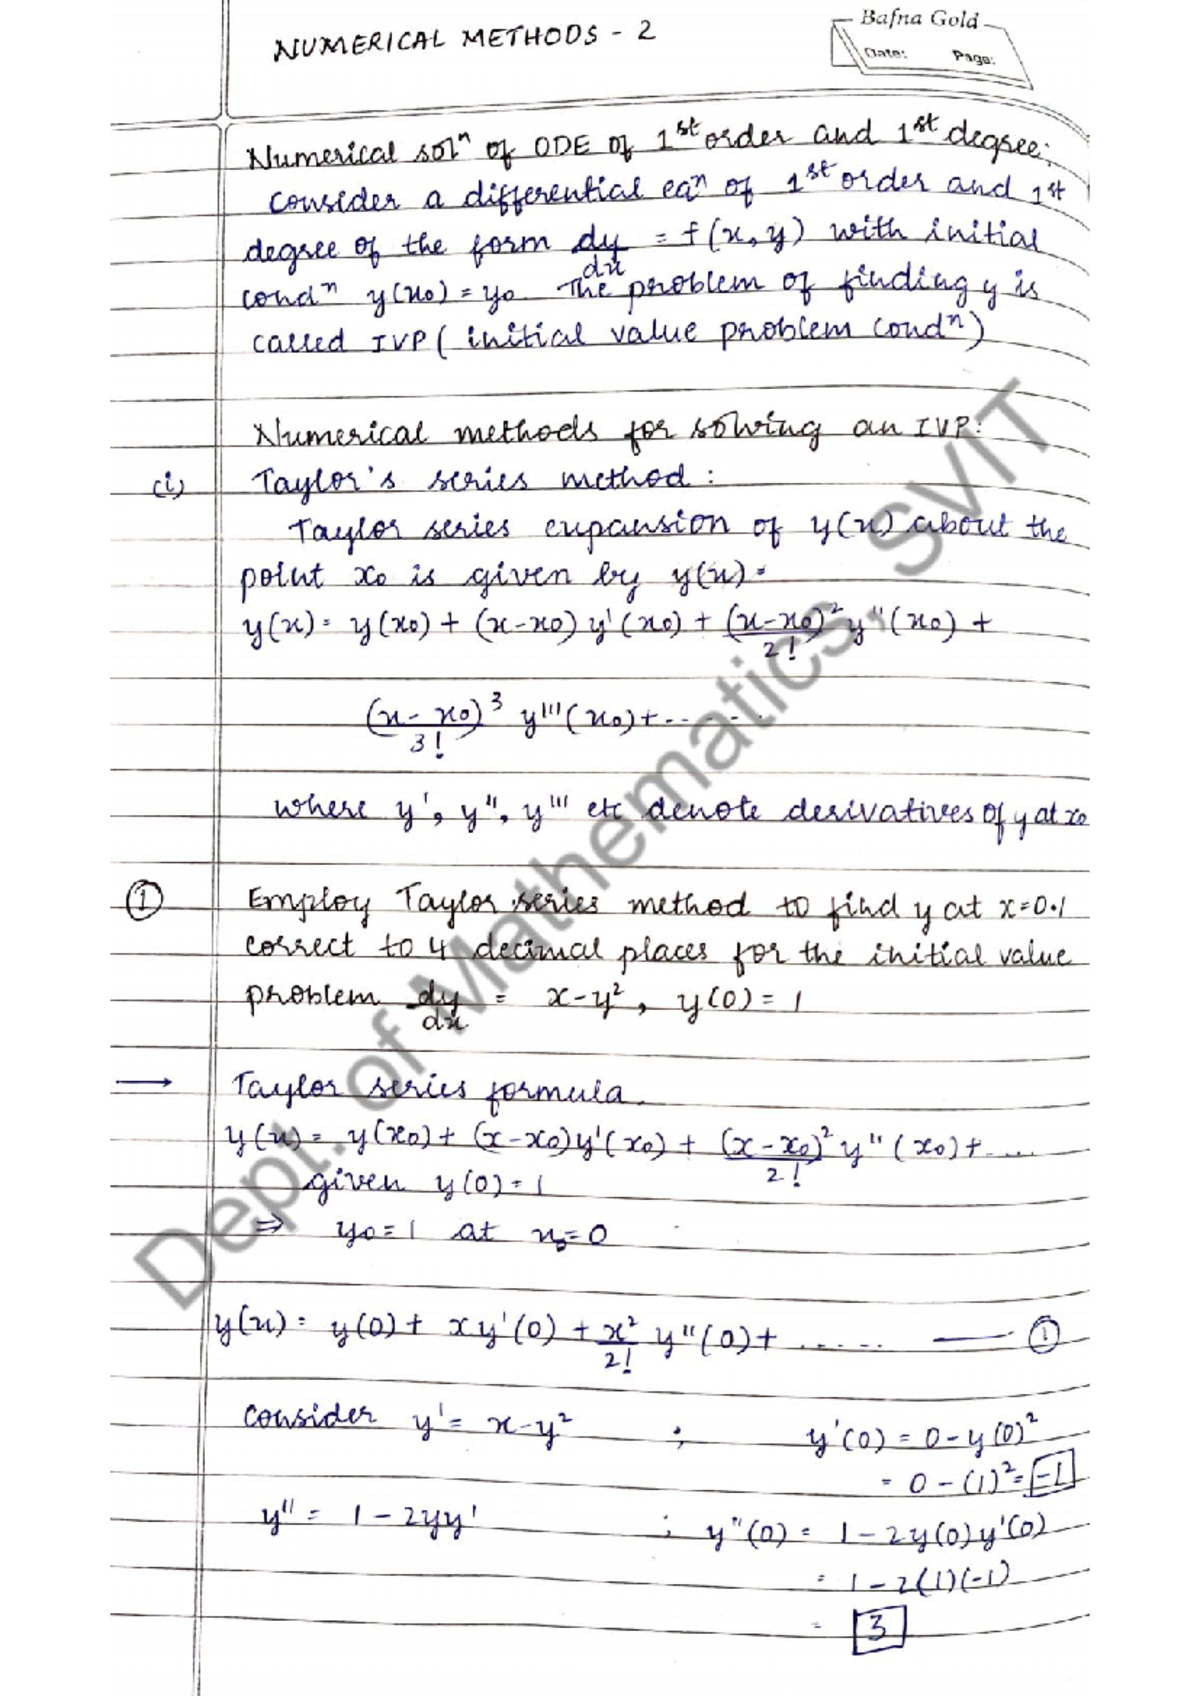 Bafna Gold
Date: Page:
NUMERICAL METHODS - 2
Numerical solⁿ of ODE of 1ˢᵗ order and 1ˢᵗ degree:
Consider a differential eqⁿ of 1ˢᵗ order and 1ˢᵗ
degree of the form dy/dx = f(x, y) with initial
condⁿ y(x₀) = y₀. The problem of finding y is
called IVP ( initial value problem condⁿ)
Numerical methods for solving an IVP:
(i) Taylor's series method:
Taylor series expansion of y(x) about the
point x₀ is given by y(x) =
y(x) = y(x₀) + (x-x₀) y'(x₀) + (x-x₀)²/2! y''(x₀) +
(x-x₀)³/3! y'''(x₀) + ......
where y', y'', y''' etc denote derivatives of y at x₀
① Employ Taylor series method to find y at x=0.1
correct to 4 decimal places for the initial value
problem dy/dx = x-y², y(0) = 1
→ Taylor series formula.
y(x) = y(x₀) + (x-x₀)y'(x₀) + (x-x₀)²/2! y''(x₀) + ....
given y(0) = 1
⇒ y₀ = 1 at x₀ = 0
y(x) = y(0) + xy'(0) + x²/2! y''(0) + ...... — ①
consider y' = x-y² ; y'(0) = 0 - y(0)²
= 0 - (1)² = -1
y'' = 1 - 2yy' ; y''(0) = 1 - 2y(0)y'(0)
= 1 - 2(1)(-1)
= 3
Dept. of Mathematics, SVIT